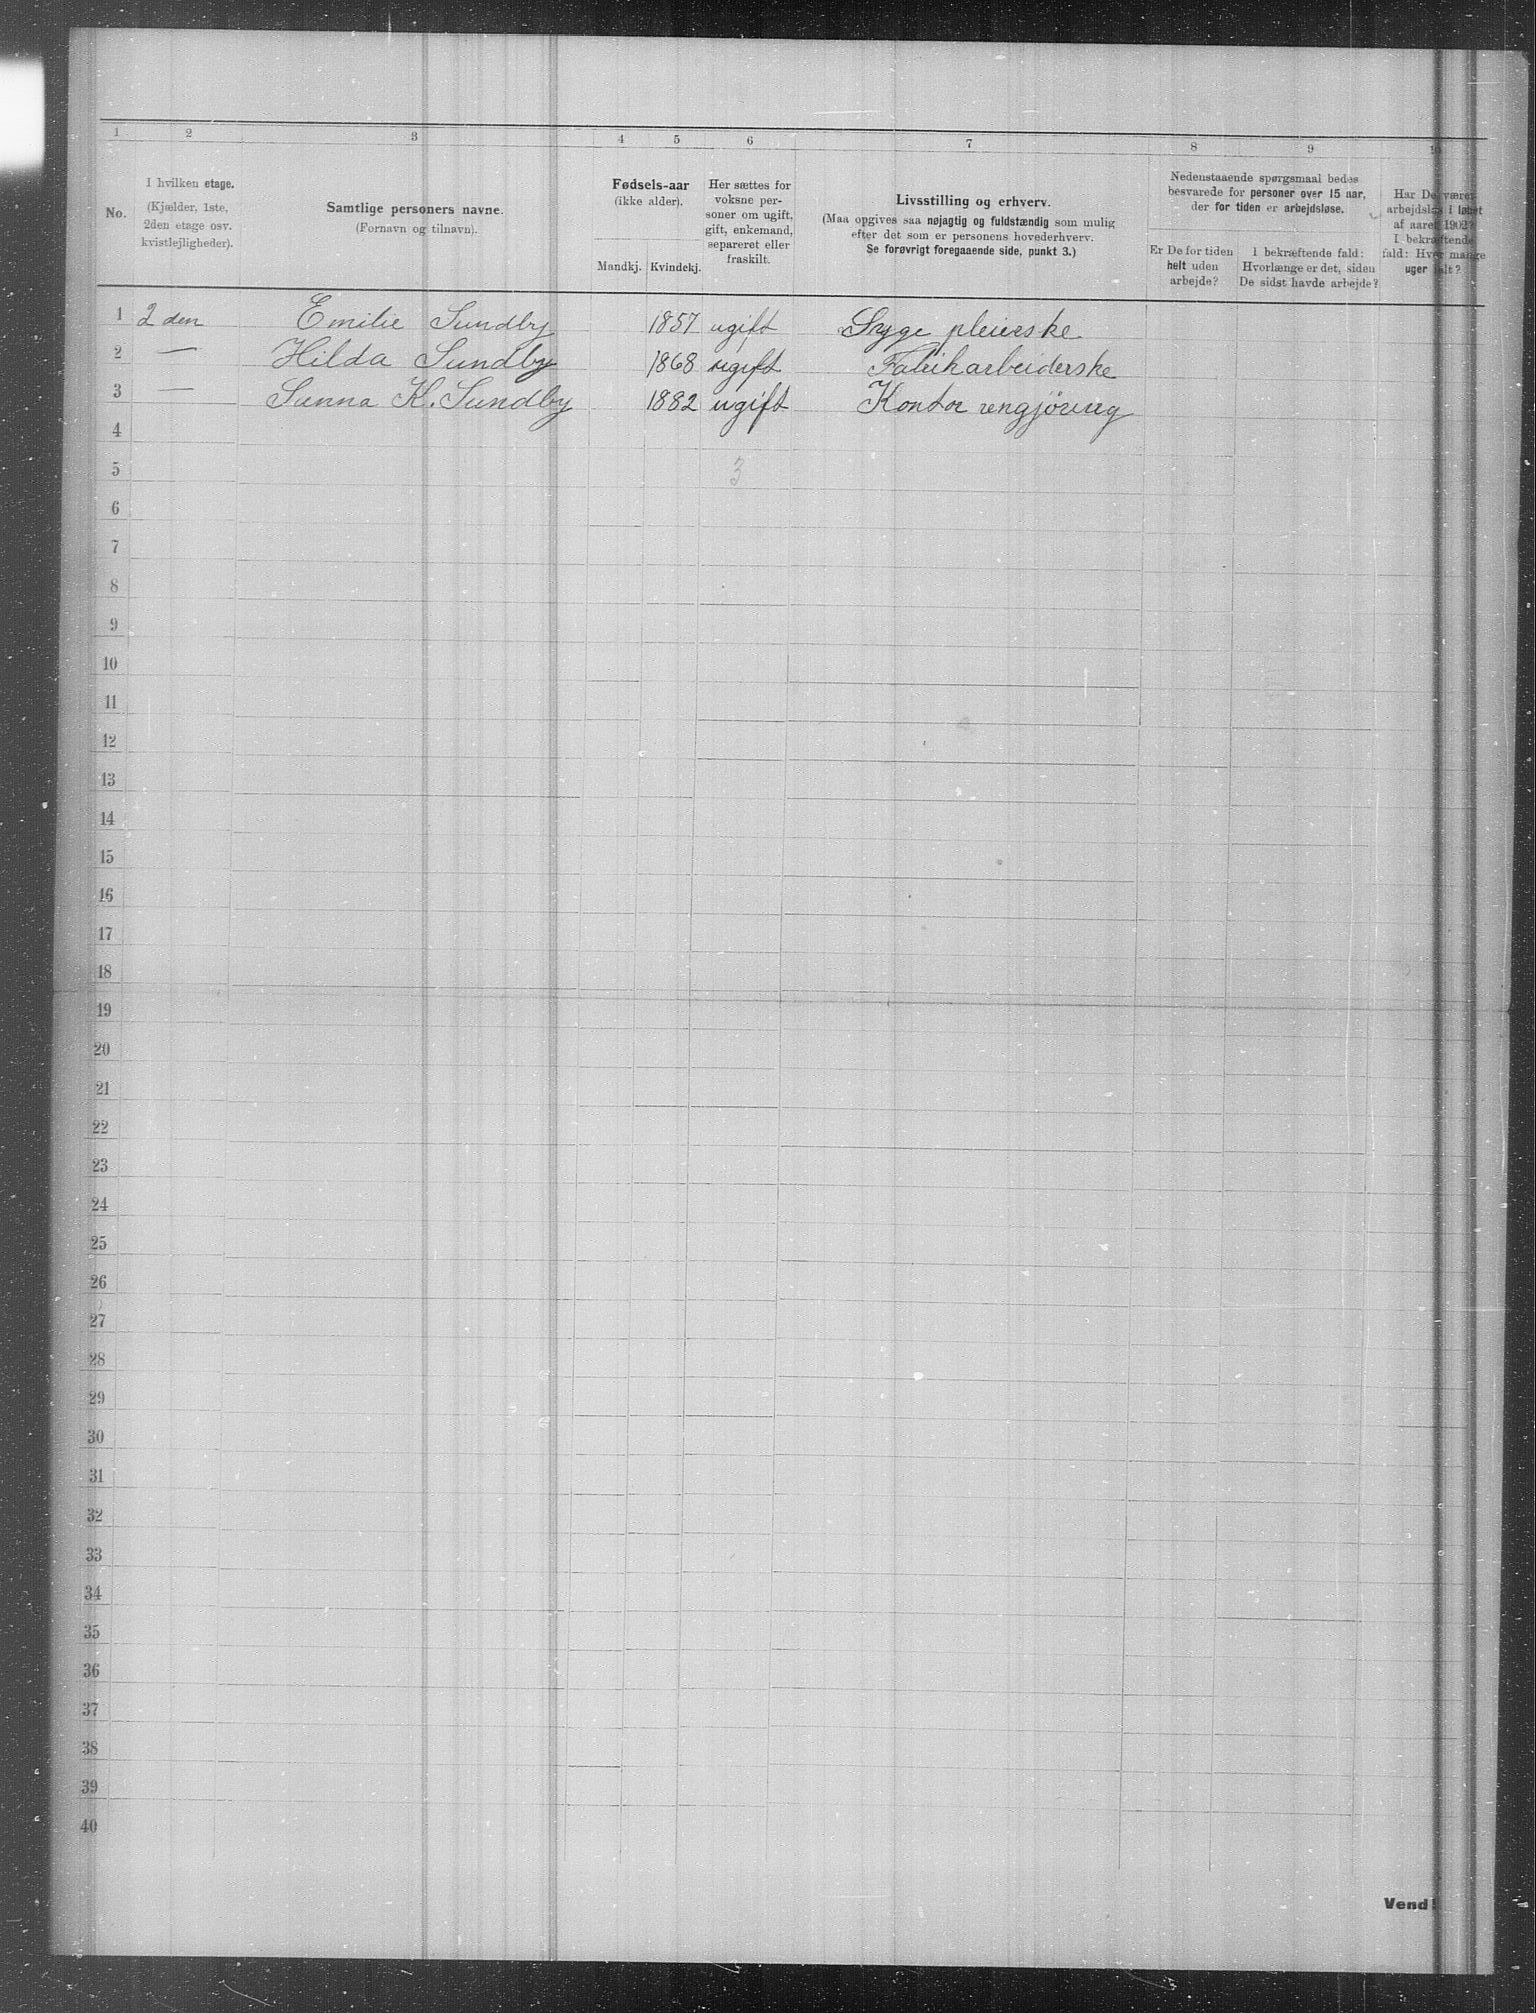 1 2 3 4 5 6 7 8 9 10
No.
I hvilken etage.
(Kjælder, 1ste,
2den etage osv.
kvistlejligheder).
Samtlige personers navne.
(Fornavn og tilnavn).
Fødsels-aar
(ikke alder).
Mandkj. Kvindekj.
Her sættes for
voksne per-
soner om ugift,
gift, enkemand,
separeret eller
fraskilt.
Livsstilling og erhverv.
(Maa opgives saa nøjagtig og fuldstændig som mulig
efter det som er personens hovederhverv.
Se forøvrigt foregaaende side, punkt 3.)
Nedenstaaende spørgsmaal bedes
besvarede for personer over 15 aar,
der for tiden er arbejdsløse.
Er De for tiden
helt uden
arbejde?
I bekræftende fald:
Hvorlænge er det, siden
De sidst havde arbejde?
Har De været
arbejdsløs i løbet
af aaret 1902?
I bekræftende
fald: Hvor mange
uger ialt?
1 2 den Emilie Sundby 1857 ugift Syge pleierske
2 — Hilda Sundby 1868 ugift Fabrikarbeiderske
3 — Sunna K. Sundby 1882 ugift Kontor rengjøring
4
5 3
6
7
8
9
10
11
12
13
14
15
16
17
18
19
20
21
22
23
24
25
26
27
28
29
30
31
32
33
34
35
36
37
38
39
40
Vend!